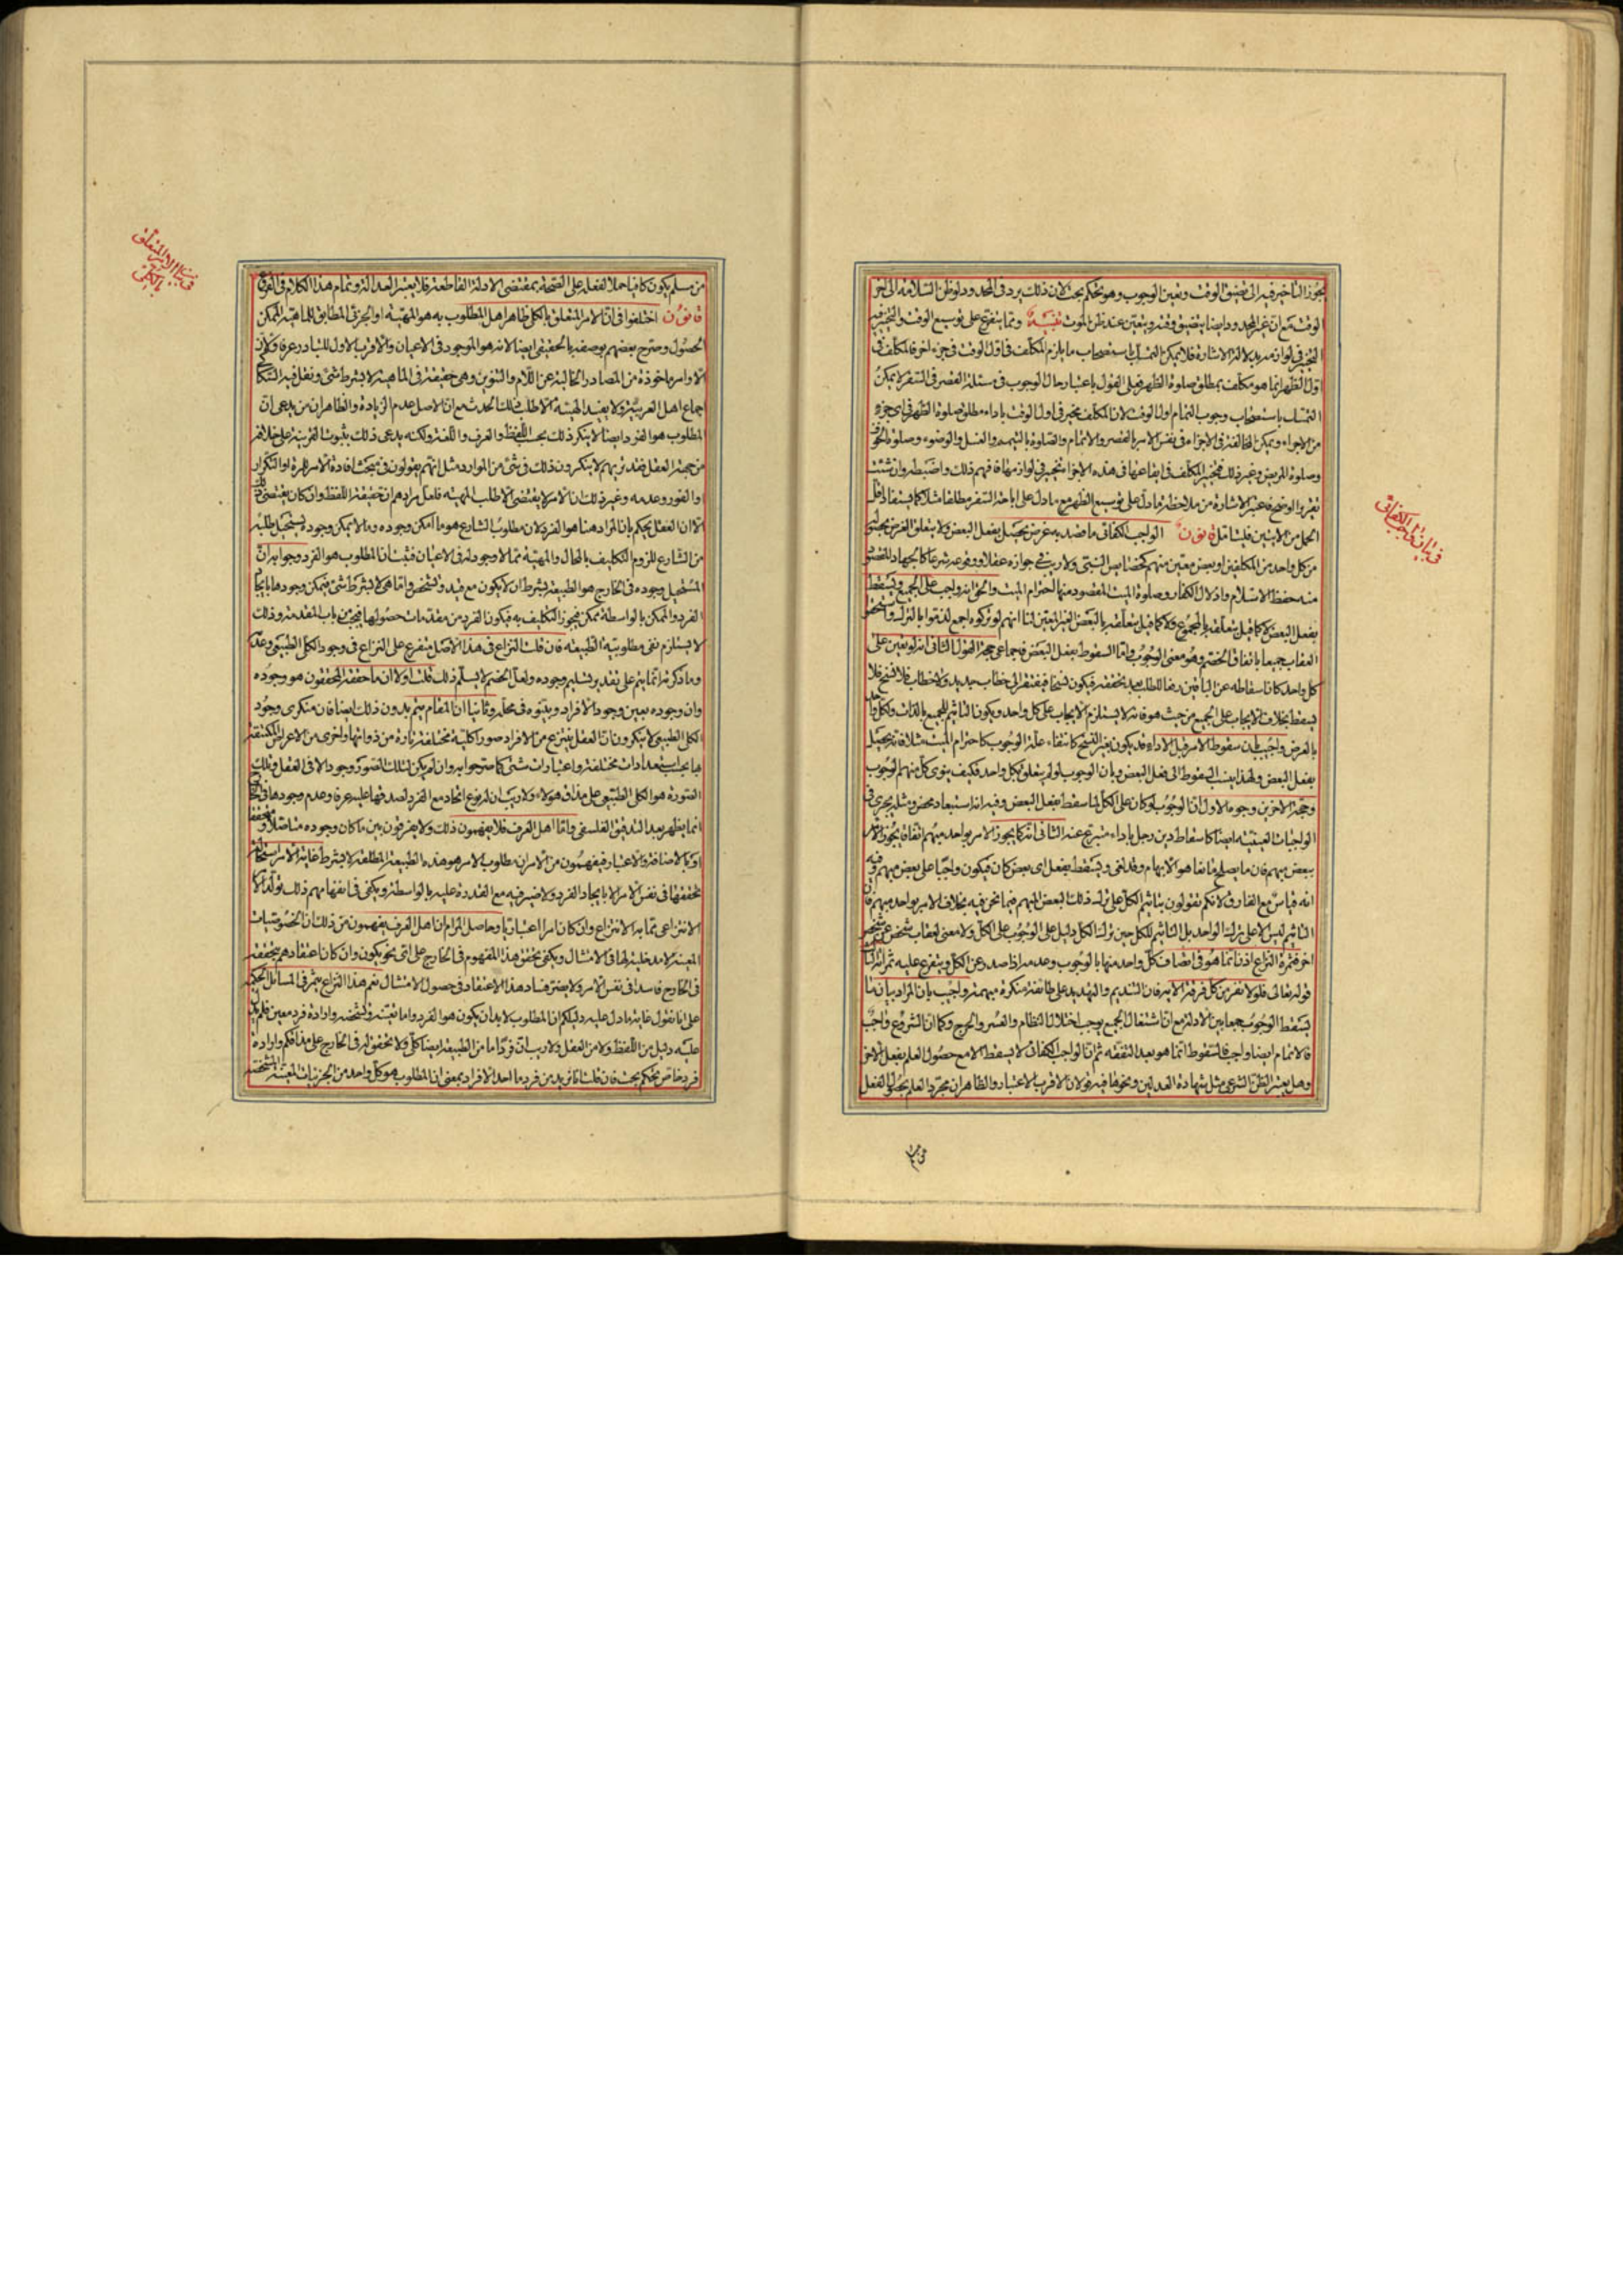 يجوز التاخير فيه الى تضيق الوقت وتعين الوجوب وهو تحكم بحت لان ذلك يرد فى المحدود لو ظن السلامة الى اخر
الوقت مع ان غير المحدود ايضا يتضيق وقته ويتعين عند ظن الموت تنبيه ومما يتفرع على توسيع الوقت والتخيير فيه
التخيير فى لوازمه بدلالة الاشارة فلا يمكن التمسك باستصحاب ما يلزم المكلف فى اول الوقت فى جزء اخر فالمكلف فى
اول الظهر انما هو مكلف بمطلق صلوة الظهر فعلى القول باعتبار حال الوجوب فى مسئلة القصر فى السفر لا يمكن
التمسك باستصحاب وجوب التمام اول الوقت لان المكلف مخير فى اول الوقت باداء مطلق صلوة الظهر فى اى جزء
من الاجزاء ويمكن المخالفة فى الاجزاء فى نفس الامر بالقصر والاتمام والصلوة بالتيمم والغسل والوضوء وصلوة الخوف
وصلوة المريض وغير ذلك فتخيير المكلف فى ايقاعها فى هذه الاجزاء تخيير فى لوازمها فافهم ذلك واضبطه وان شئت
تقرير الوضح فاعتبر الاشارة من ملاحظة ما دل على توسيع الظهر مع ما دل على اباحة السفر مطلقا مثلا كما يستفاد اقل
الحمل من الايتين فليتامل قانون الواجب الكفائى ما قصد به غرض يحصل بفعل البعض ولا يتعلق الغرض بحصوله
من كل واحد من المكلفين او بعض معين منهم كخصايص النبى ولا ريب فى جوازه عقلا ووقوعه شرعا كالجهاد المقصود
منه حفظ الاسلام واذلال الكفار وصلوة الميت المقصود منها احترام الميت والحق انه واجب على الجميع ويسقط
بفعل البعض لا كما قيل بتعلقه بالمجموع ولا كما قيل بتعلقه بالبعض الغير المعين لنا انهم لو تركوه اجمع لذموا بالترك واستحقوا
العقاب جميعا باتفاق الخصم وهو معنى الوجوب واما السقوط بفعل البعض فاجماعى حجة القول الثانى انه لو تعين على
كل واحد كان اسقاطه عن الباقين رفعا للطلب بعد تحققه فيكون نسخا فيفتقر الى خطاب جديد ولا خطاب فلا نسخ فلا
يسقط بخلاف الايجاب على الجميع من حيث هو فانه لا يستلزم الايجاب على كل واحد ويكون التاثيم للجميع بالذات ولكل واحد
بالعرض واجيب بان سقوط الامر قبل الاداء قد يكون بغير النسخ كانتفاء علة الوجوب كاحترام الميت مثلا فانه يحصل
بفعل البعض ولهذا ينسب السقوط الى فعل البعض وبان الوجوب لو لم يتعلق بكل واحد فكيف ينوى كل منهم الوجوب
وحجة الاخرين وجوه الاول ان الوجوب لو كان على الكل لما سقط بفعل البعض وفيه انه استبعاد محض ومثله يجرى فى
الواجبات العينية ايضا كاسقاط دين رجل باداء متبرع عنه الثانى انه كما يجوز الامر بواحد مبهم اتفاقا يجوز الامر
ببعض مبهم فان ما يصلح مانعا هو الابهام وقد لغى ويسقط بفعل اى بعض كان فيكون واجبا على بعض مبهم وفيه
انه قياس مع الفارق لانكم تقولون بتاثيم الكل على ترك ذلك البعض المبهم فيما نحن فيه بخلاف الامر بواحد مبهم فان
التاثيم ليس الا على ترك الواحد بل التاثيم للكل حين ترك الكل دليل على الوجوب على الكل ولا معنى لعقاب شخص عن شخص
اخر فثمرة النزاع اذن انما هو فى اتصاف كل واحد منها بالوجوب وعدمه اذا صدر عن الكل ويتفرع عليه ثمرات الثالث
قوله تعالى فلولا نفر من كل فرقة الاية فان التنديم والتهديد على طائفة منكرة مبهمة واجيب بان المراد بيان ما
يسقط الوجوب جمعا بين الادلة مع ان اشتغال الجميع يوجب اختلال النظام والعسر والحرج وكما ان الشروع واجب
فالاتمام ايضا واجب فالسقوط انما هو بعد التفقه ثم ان الواجب الكفائى لا يسقط الا مع حصول العلم بفعل الاخر
وهل يعتبر الظن الشرعى مثل شهادة العدلين ونحوها فيه قولان الاقرب الاعتبار والظاهر ان مجرد العلم بحصول الفعل
فى بيان الواجب الكفائى
من مسلم يكون كافيا حملا لفعله على الصحة بمقتضى الادلة القاطعة فلا يعتبر العدالة وتمام هذا الكلام فى الفروع
قانون اختلفوا فى ان الامر المتعلق بالكلى ظاهرا هل المطلوب به هو المهية او الجزئى المطابق للماهية الممكن
الحصول وصرح بعضهم بوصفه بالحقيقى ايضا لانه هو الموجود فى الاعيان والاقرب الاول للتبادر عرفا ولان
الاوامر ماخوذة من المصادر الخالية عن اللام والتنوين وهى حقيقة فى الماهية لا بشرط شئ ونقل فيه السكاكى
اجماع اهل العربية ولا يفيد الهيئة الا طلب ذلك الحدث مع ان الاصل عدم الزيادة والظاهر ان من يدعى ان
المطلوب هو الفرد ايضا لا ينكر ذلك بحسب اللفظ والعرف واللغة ولكنه يدعى ذلك بثبوت القرينة على خلافه
من جهة العقل فقد تريهم لا ينكرون ذلك فى شئ من الموارد مثل انهم يقولون فى مبحث افادة الامر للمرة او التكرار
والفور وعدمه وغير ذلك ان الامر لا يقتضى الا طلب المهية فلعل مرادهم ان حقيقة اللفظ وان كان يقتضى ذلك
الا ان العقل يحكم بان المراد هنا هو الفرد لان مطلوب الشارع هو ما امكن وجوده وما لا يمكن وجوده يستحيل طلبه
من الشارع للزوم التكليف بالمحال والمهية مما لا وجود له فى الاعيان فثبت ان المطلوب هو الفرد وجوابه ان
المستحيل وجوده فى الخارج هو الطبيعة بشرط ان لا يكون مع قيد وتشخص واما هى لا بشرط شئ فيمكن وجودها بايجاد
الفرد والممكن بالواسطة ممكن فيجوز التكليف به فيكون الفرد من مقدمات حصولها فيجب من باب المقدمة وذلك
لا يستلزم نفى مطلوبية الطبيعة فان قلت النزاع فى هذا الاصل متفرع على النزاع فى وجود الكلى الطبيعى وعدمه
وما ذكرته انما يتم على تقدير تسليم وجوده ولعل الخصم لا يسلم ذلك قلت اولا ان ما حققه المحققون هو وجوده
وان وجوده بعين وجود الافراد وبينوه فى محله وثانيا ان المقام يتم بدون ذلك ايضا فان منكرى وجود
الكلى الطبيعى لا ينكرون ان العقل ينتزع من الافراد صورا كلية مختلفة تارة من ذواتها واخرى من الاعراض المكتنفة
بها بحسب استعدادات مختلفة واعتبارات شتى كما صرحوا به وان لم يكن لتلك الصور وجود الا فى العقل وتلك
الصورة هو الكلى الطبيعى على مذاق هؤلاء ولا ريب ان له نوع اتحاد مع الفرد لصدقها عليه عرفا وعدم وجودها فى الخارج
انما يظهر بعد التدقيق الفلسفى واما اهل العرف فلا يفهمون ذلك ولا يفرقون بين ما كان وجوده متاصلا
او بالاضافة والاعتبار فيفهمون من الامر ان مطلوب الامر هو هذه الطبيعة المطلقة لا بشرط غاية الامر استحالة
تحققها فى نفس الامر الا بايجاد الفرد ولا ضير فيه مع القدرة عليه بالواسطة ويكفى فى انفهامهم ذلك
الانتزاعى مما به الانتزاع وان كان امرا اعتباريا وحاصل المرام ان اهل العرف يفهمون من ذلك ان الخصوصيات
المعينة لا مدخلية لها فى الامتثال ويكفى تحقق هذا المفهوم فى الخارج على اى نحو يكون وان كان اعتقادهم بتحققه
فى الخارج فاسدا فى نفس الامر ولا يضر فساد هذا الاعتقاد فى حصول الامتثال نعم هذا النزاع يثمر فى المسائل الحكمية
على انا نقول غاية ما دل عليه دليلكم ان المطلوب لا بد ان يكون هو الفرد واما تعينه وتشخصه وارادة فرد معين فلم يدل
عليه دليل من اللفظ ولا من العقل ولا ريب ان فردا ما من الطبيعة ايضا كلى ولا تحقق له فى الخارج على مذاقكم وارادة
فرد خاص تحكم بحت فان قلت انا نريد من فرد ما احد الافراد بمعنى ان المطلوب هو كل واحد من الجزئيات المعينة المشخصة
فى بيان الامر المتعلق
بالكلى